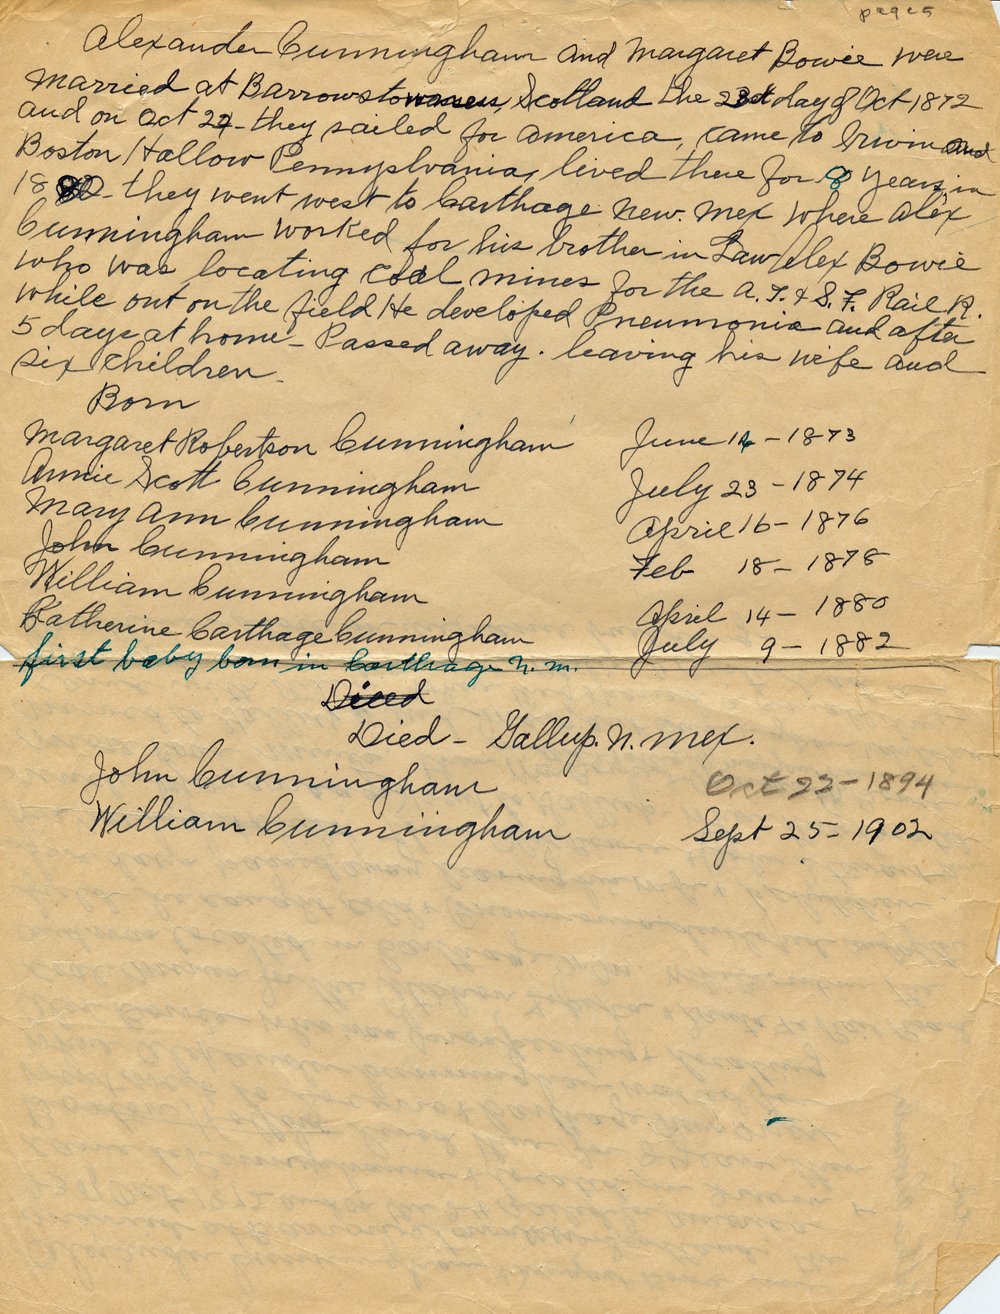 page 5
Alexander Cunningham and Margaret Bowie were
married at Barrowstowness, Scotland the 23d day of Oct 1872
and on Oct 24 - they sailed for America, came to Irwin and
Boston Hallow Pennsylvania, lived there for 8 years, in
1880 - they went west to Carthage New. Mex where Alex
Cunningham worked for his brother in Law Alex Bowie
who was locating coal mines for the A. T. & S. F. Rail R.
while out on the field He developed Pneumonia and after
5 days at home - Passed away. leaving his wife and
six children.
Born
Margaret Robertson Cunningham June 14 - 1873
Annie Scott Cunningham July 23 - 1874
Mary Ann Cunningham April 16 - 1876
John Cunningham Feb 18 - 1878
William Cunningham April 14 - 1880
Katherine Carthage Cunningham July 9 - 1882
first baby born in Carthage N. M.
Died - Gallup. N. Mex.
John Cunningham Oct 22 - 1894
William Cunningham Sept 25 - 1902